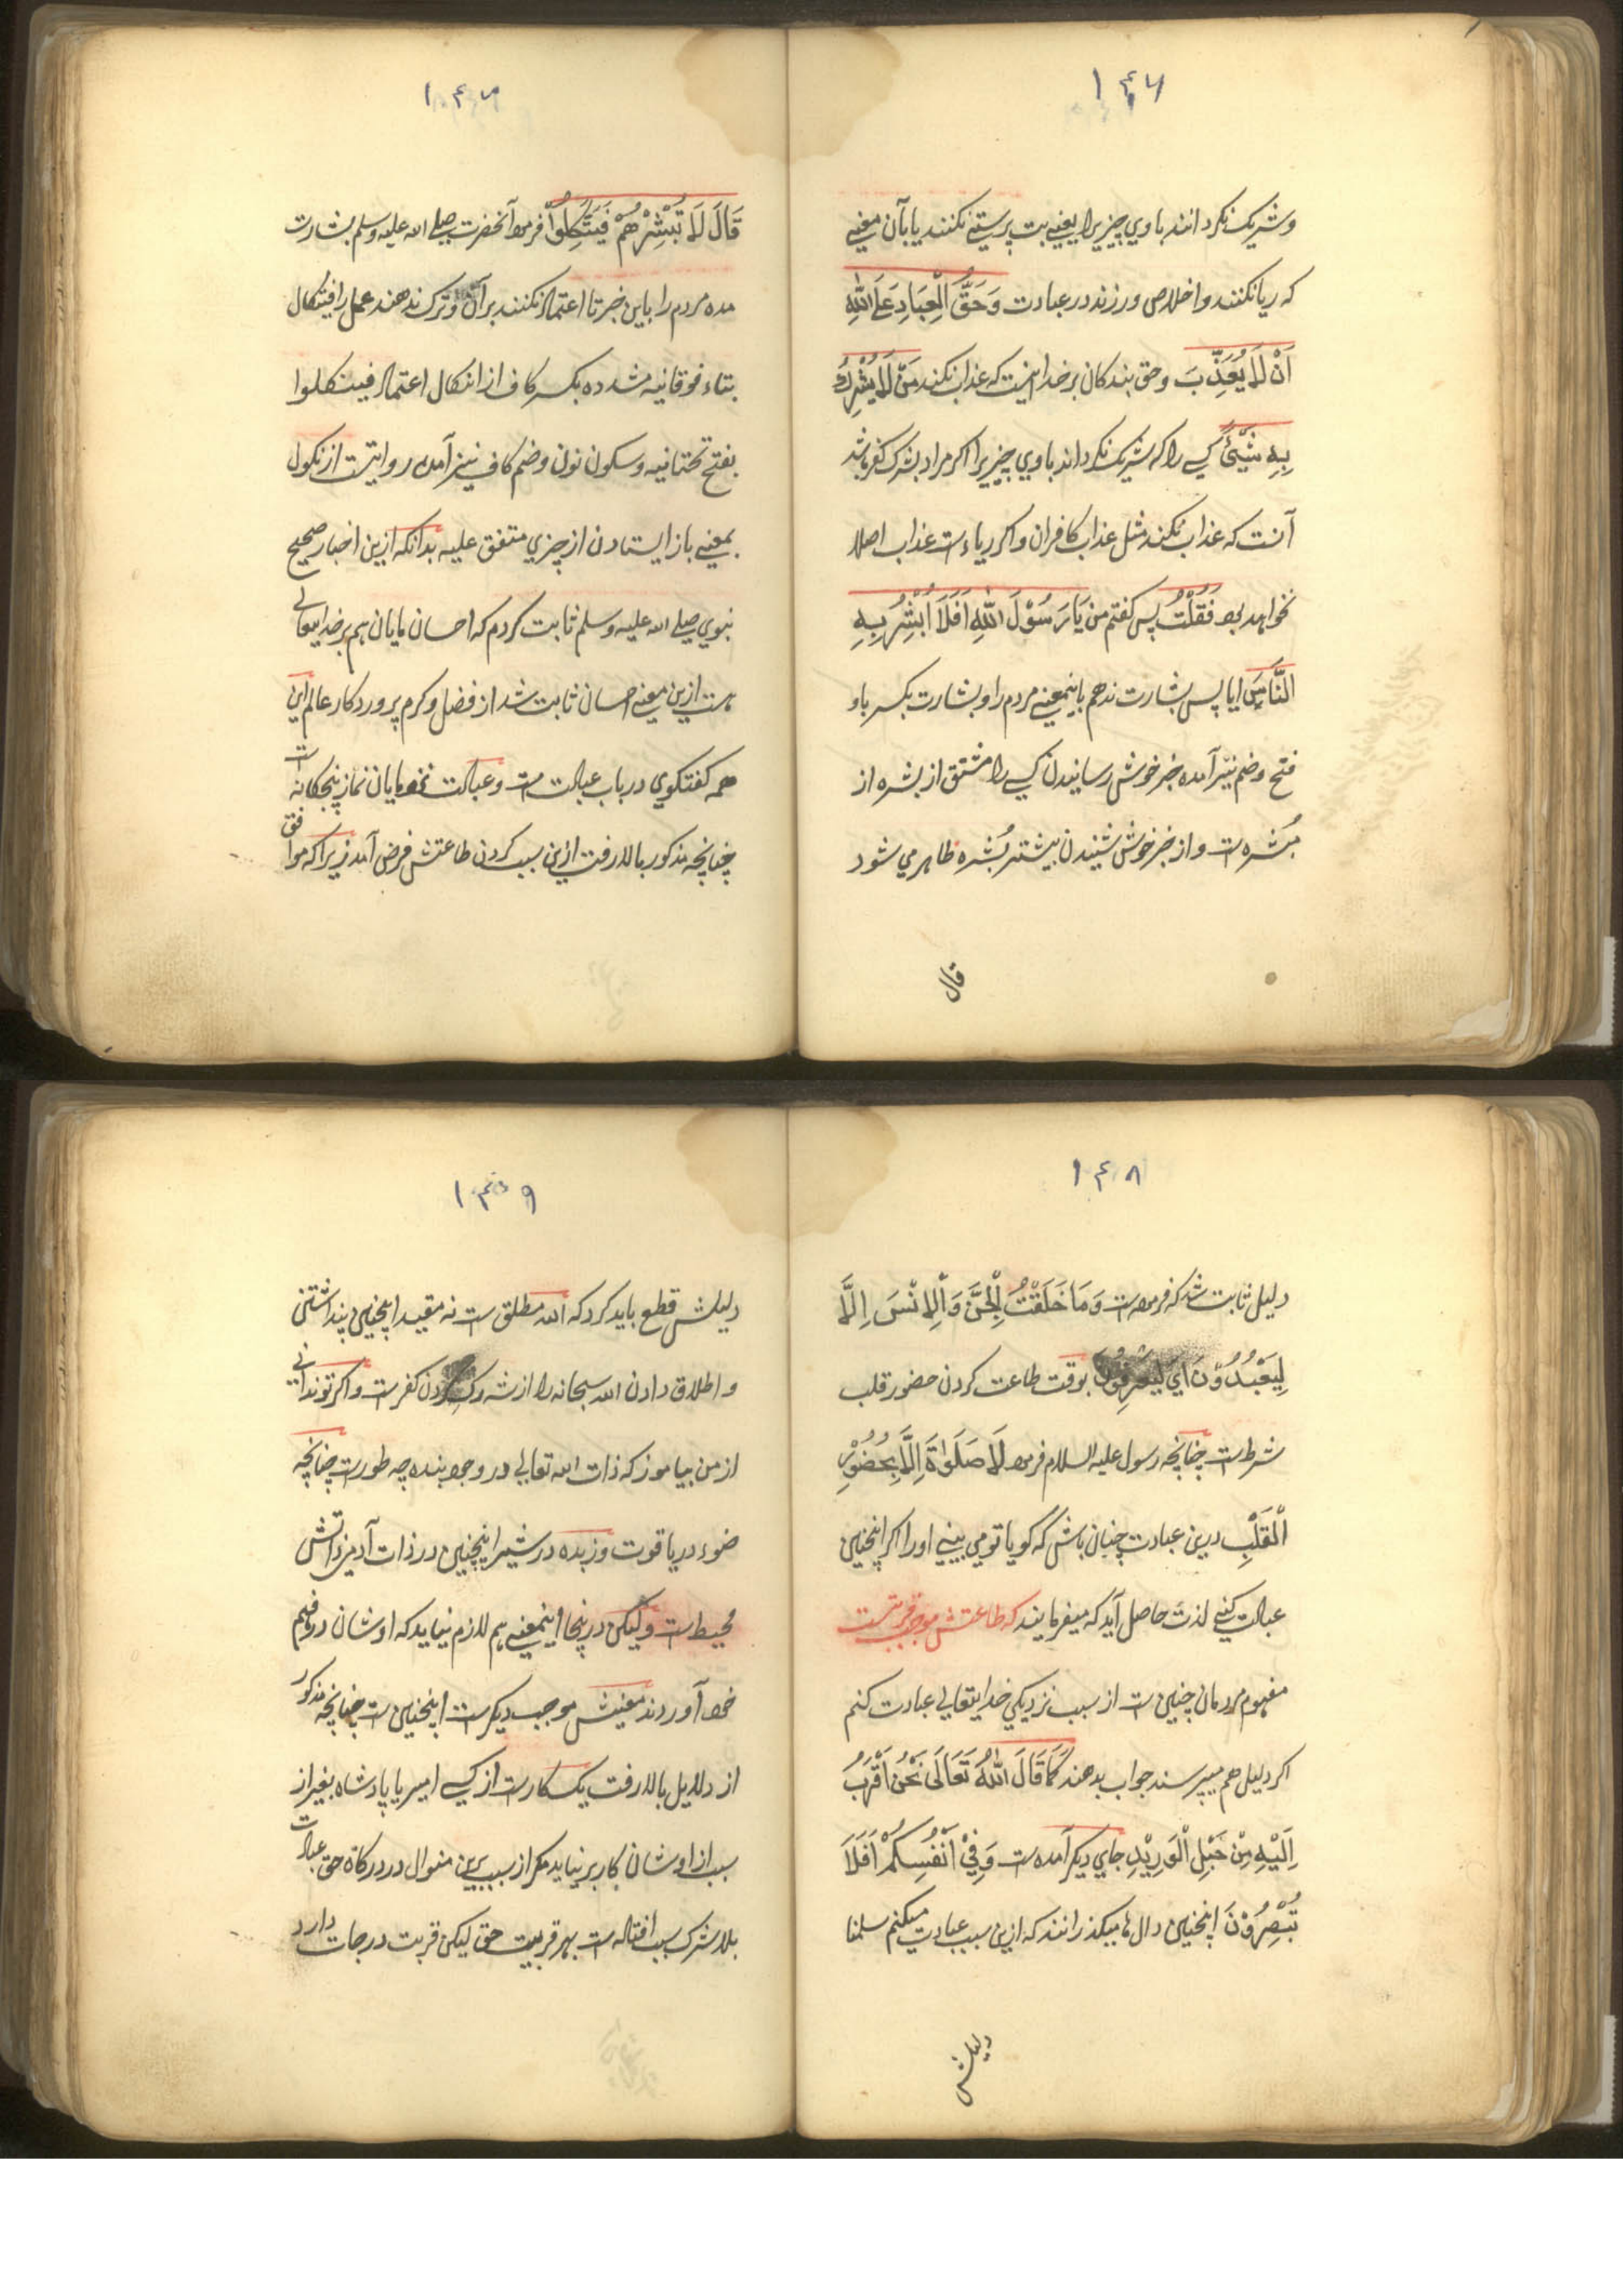 ١٤٦
وشریک نکردانند باوي چیزیرا یعنے بت پرستے نکنند یا بآن معنے
که ریا نکنند و اخلاص ورزند در عبادت وَحَقَّ الْعِبَادِ عَلَی اللّٰهِ
اَنْ لَا یُعَذِّبَ وحق بندکان بر خدا اینست که عذاب نکند مَنْ لَا یُشْرِكُ
بِهِ شَیْئًا کسے را که شریک نکرداند باوي چیزیرا اکر مراد بشرک کفر باشد
آنست که عذاب نکند مثل عذاب کافران و اکر ریاء ست عذاب اصلا
نخواهد بود فَقُلْتُ پس کفتم من یَا رَسُوْلَ اللّٰهِ اَفَلَا اُبَشِّرُ بِهِ
النَّاسَ ایا پس بشارت ندهم باینمعنے مردم را و بشارت بکسر باو
فتح وضم نیز آمده خبر خوش رسانیدن کسے را مشتق از بشره از
بُشره ست و از خبر خوش شنیدن بیشتر بُشره ظاهر مي شود
قال
١٤٧
قَالَ لَا تُبَشِّرْهُمْ فَیَتَّکِلُوْا فرمود آنحضرت صلے الله علیه وسلم بشارت
مده مردم را باین خبر تا اعتماد نکنند بر آن و ترک ندهند عمل را فیتکال
بتاء فوقانیه مشدده بکسر کاف از اتکال اعتماد فینکلوا
بفتح تحتانیه وسکون نون وضم کاف نیز آمده روایتست از نکول
بمعنے باز ایستادن از چیزي متفق علیه بدانکه ازین اخبار صحیح
نبوي صلے الله علیه وسلم ثابت کردم که احسان مایان هم بر خدایتعالے
ست ازین معنے احسان ثابت شد از فضل و کرم پروردکار عالم این
همه کفتکوي در باب عبادت ست و عبادت نمودمایان نماز پنجکانه ست
چنانچه مذکور بالا رفت ازین سبب کردن طاعتش فرض آمد زیرا که موافق
١٤٨
دلیل ثابت شد که فرموده ست وَمَا خَلَقْتُ الْجِنَّ وَالْاِنْسَ اِلَّا
لِیَعْبُدُوْنَ اَي لِیَعْرِفُوْنَ بوقت طاعت کردن حضور قلب
شرط ست چنانچه رسول علیه السلام فرمود لَا صَلٰوةَ اِلَّا بِحُضُوْرِ
الْقَلْبِ درین عبادت چنان باش که کویا تو مي بینے اورا اکر اینچنین
عبادت کنے لذت حاصل آید که میفرمایند که طاعتش موجب قربتست
مفهوم مردمان چنین ست از سبب نزدیکي خدایتعالے عبادت کنم
اکر دلیل هم میپرسند جواب بدهند کَمَا قَالَ اللّٰهُ تَعَالَی نَحْنُ اَقْرَبُ
اِلَیْهِ مِنْ حَبْلِ الْوَرِیْدِ جاي دیکر آمده ست وَفِیْ اَنْفُسِکُمْ اَفَلَا
تُبْصِرُوْنَ اینچنین دال ها میکذرانند که ازین سبب عبادت میکنم سلمنا
دلیلش
١٤٩
دلیلش قطع باید کرد که الله مطلق ست نه مقید اینچنین پنداشتنی
و اطلاق دادن الله سبحانه را از شرک کردن کفرست و اکر تو ندانے
از من بیاموز که ذات الله تعالے در وجود بنده چه طورست چنانچه
ضوء در یاقوت و زبده در شیر اینچنین در ذات آدمي ذاتش
محیط ست ولیکن درینجا اینمعنے هم لازم نیاید که اوشان در فهم
خود آوردند معنیش موجب دیکرست اینچنین ست چنانچه مذکور
از دلایل بالا رفت یک کارست از کسے امیر یا پادشاه بغیر از
سبب از اوشان کار بر نیاید مکر از سبب برین منوال در درکاه حق عبادت
بلاشرک سبب افتاده ست بهر قربیت حق لیکن قربت درجات دارد